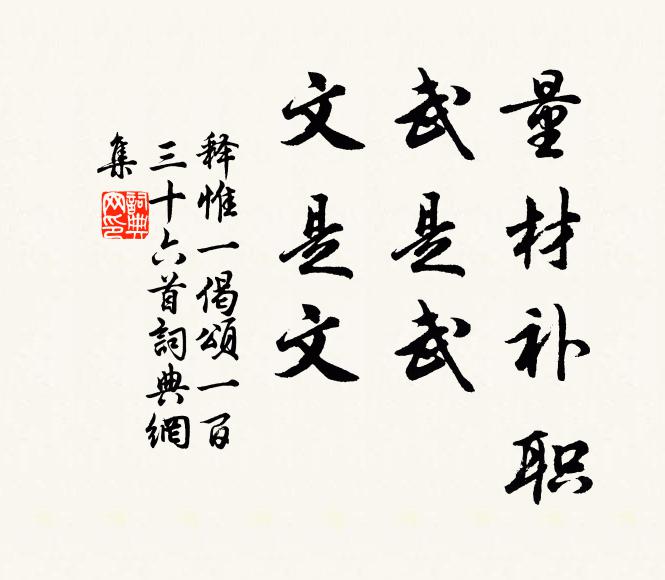 量材补职
武是武
文是文
释惟一偈颂一百
三十六首詞典網
集
詞典
网印